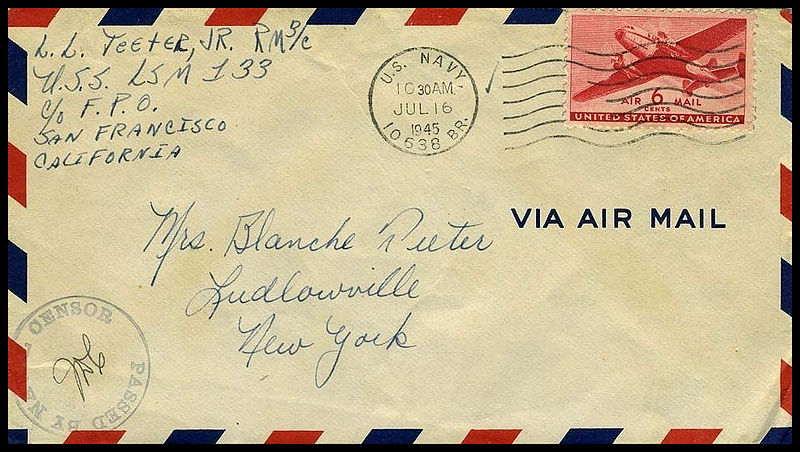 L. L. TEETER, JR. RM3/c
U.S.S. LSM 133
c/o F.P.O.
SAN FRANCISCO
CALIFORNIA
U.S. NAVY
10 30 AM
JUL 16
1945
10638 BR.
AIR 6 MAIL
CENTS
UNITED STATES OF AMERICA
VIA AIR MAIL
Mrs. Blanche Teeter
Ludlowville
New York
PASSED BY NAVAL CENSOR